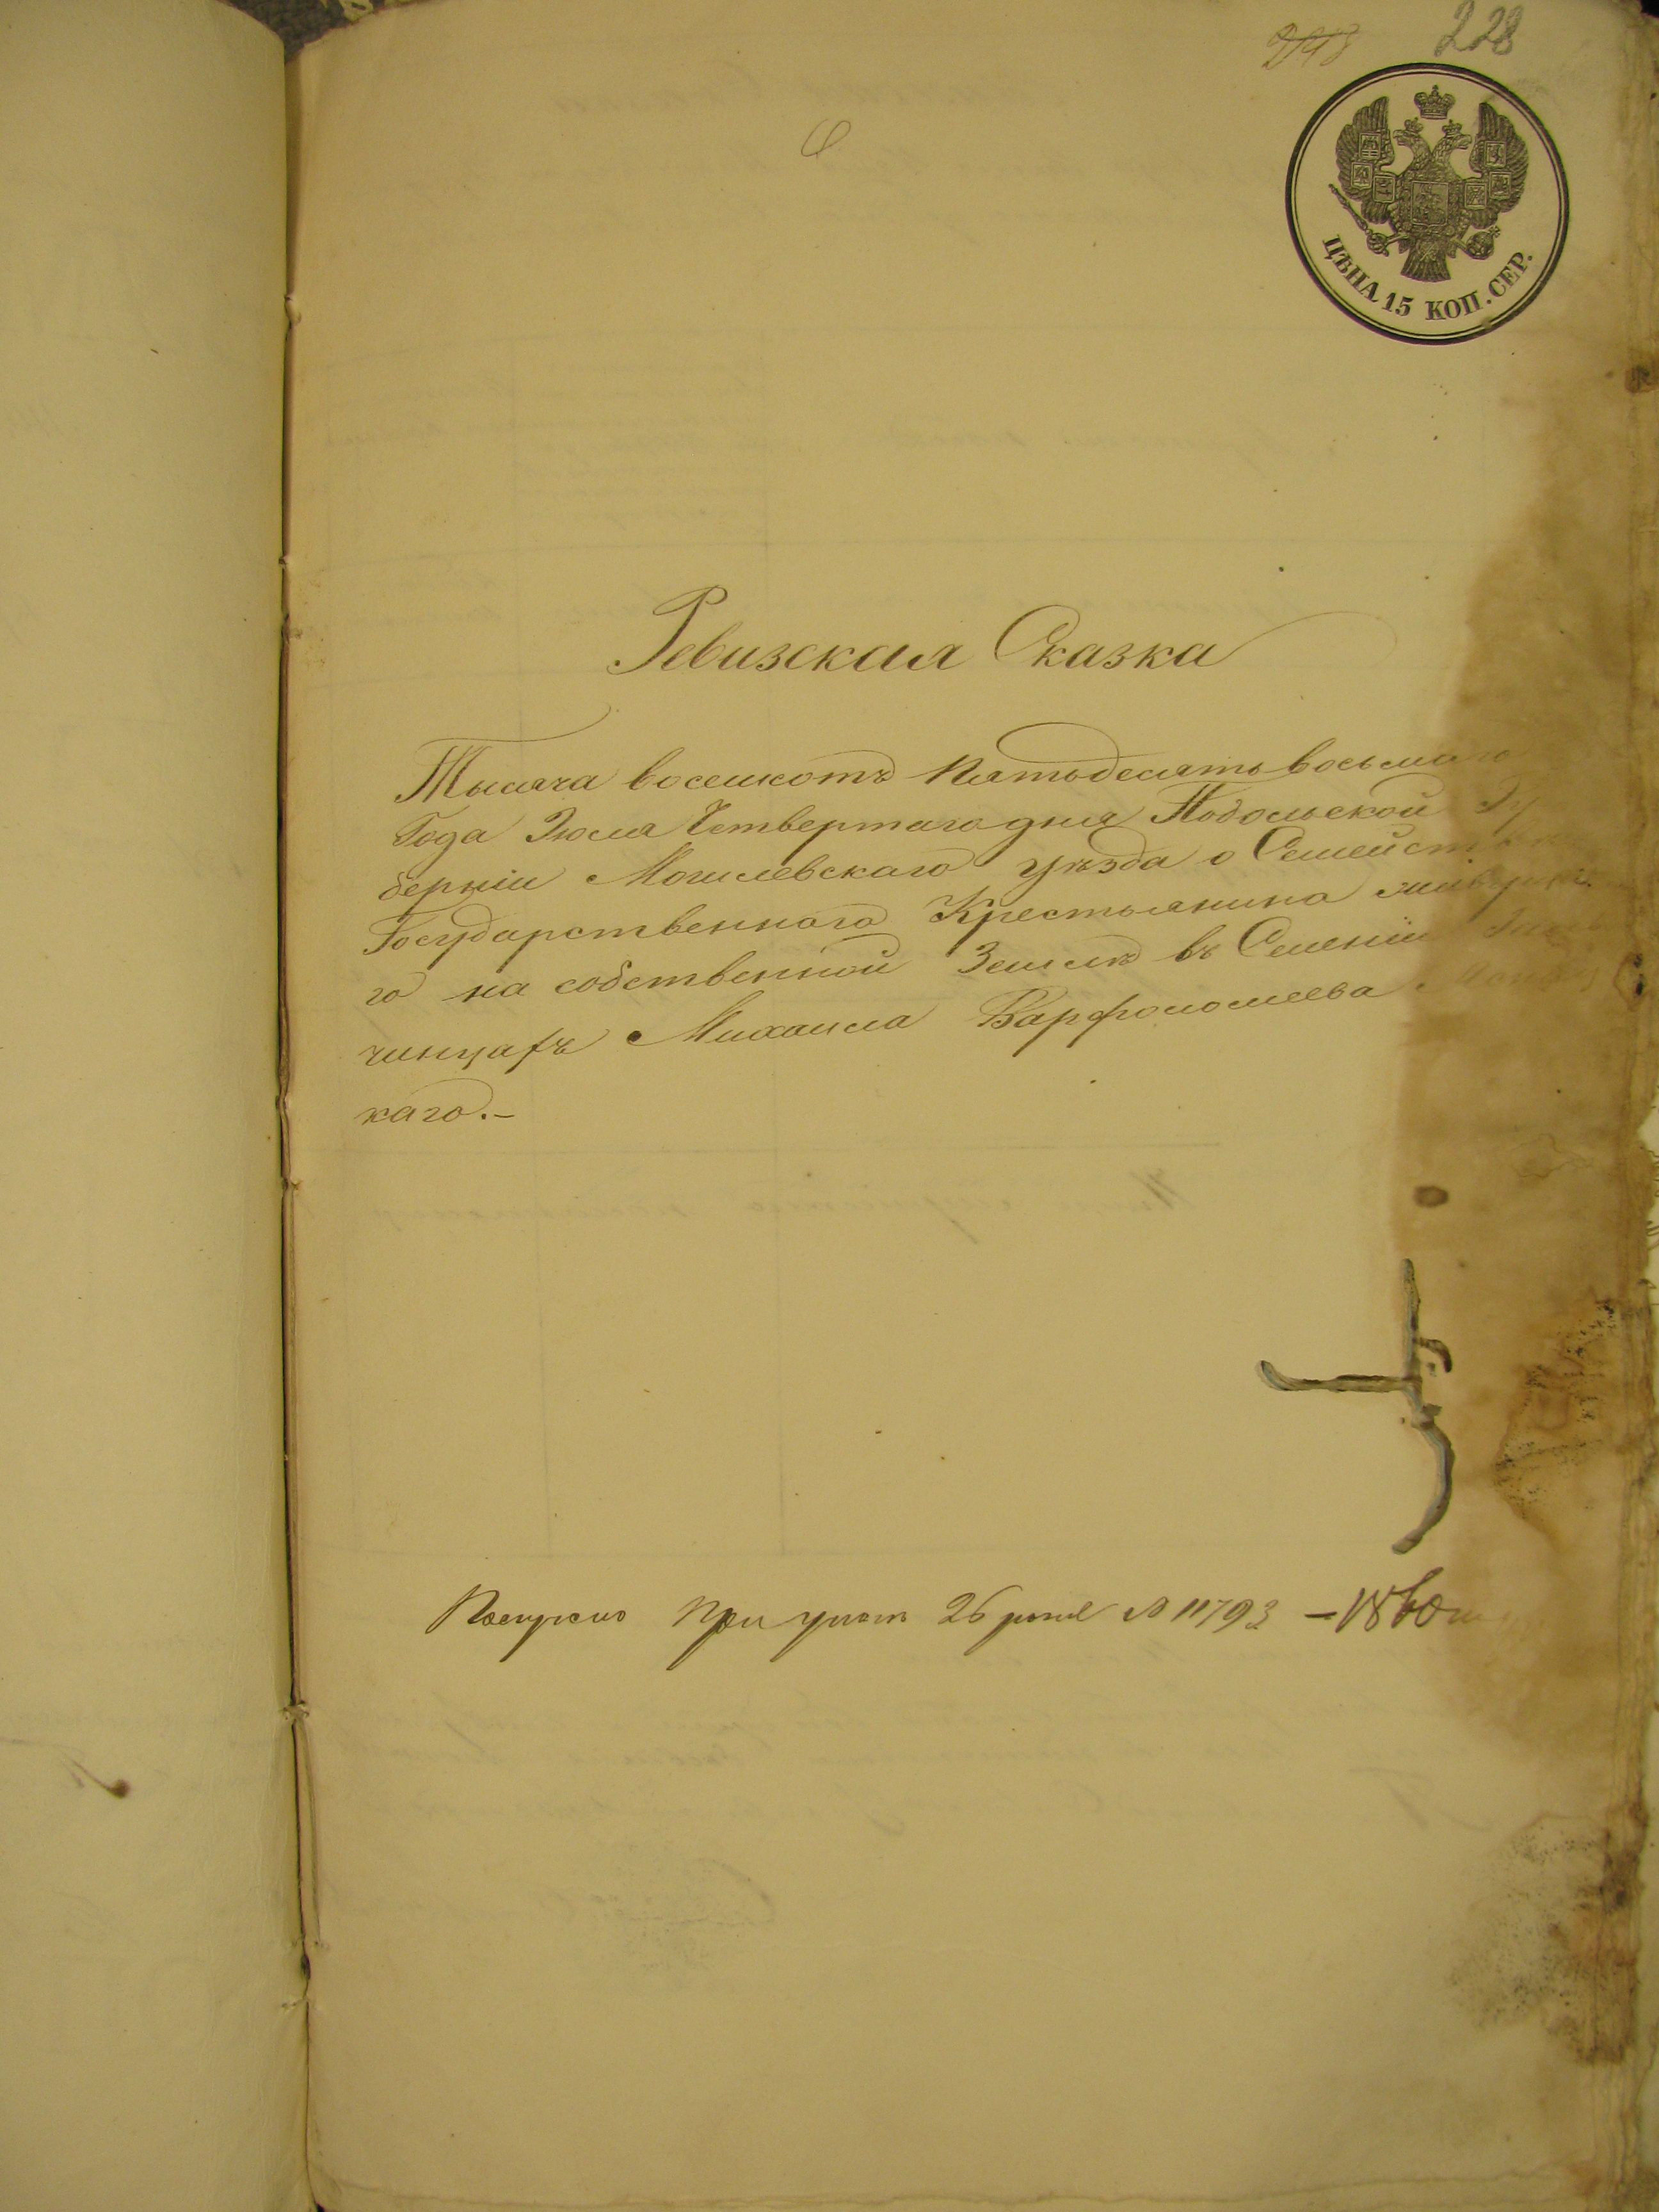 228
ЦѢНА 15 КОП. СЕР.
Ревизская Сказка
Тысяча восемсотъ Пятьдесятъ восьмаго
Года Іюля Четвертаго дня Подольской Гу
берніи Могилевскаго уѣзда о Семейств
Государственнаго Крестьянина живуща
го на собственной Землѣ въ Селеніи
чинцахъ Михаила Варфоломеева
каго.-
При 26 № 11793